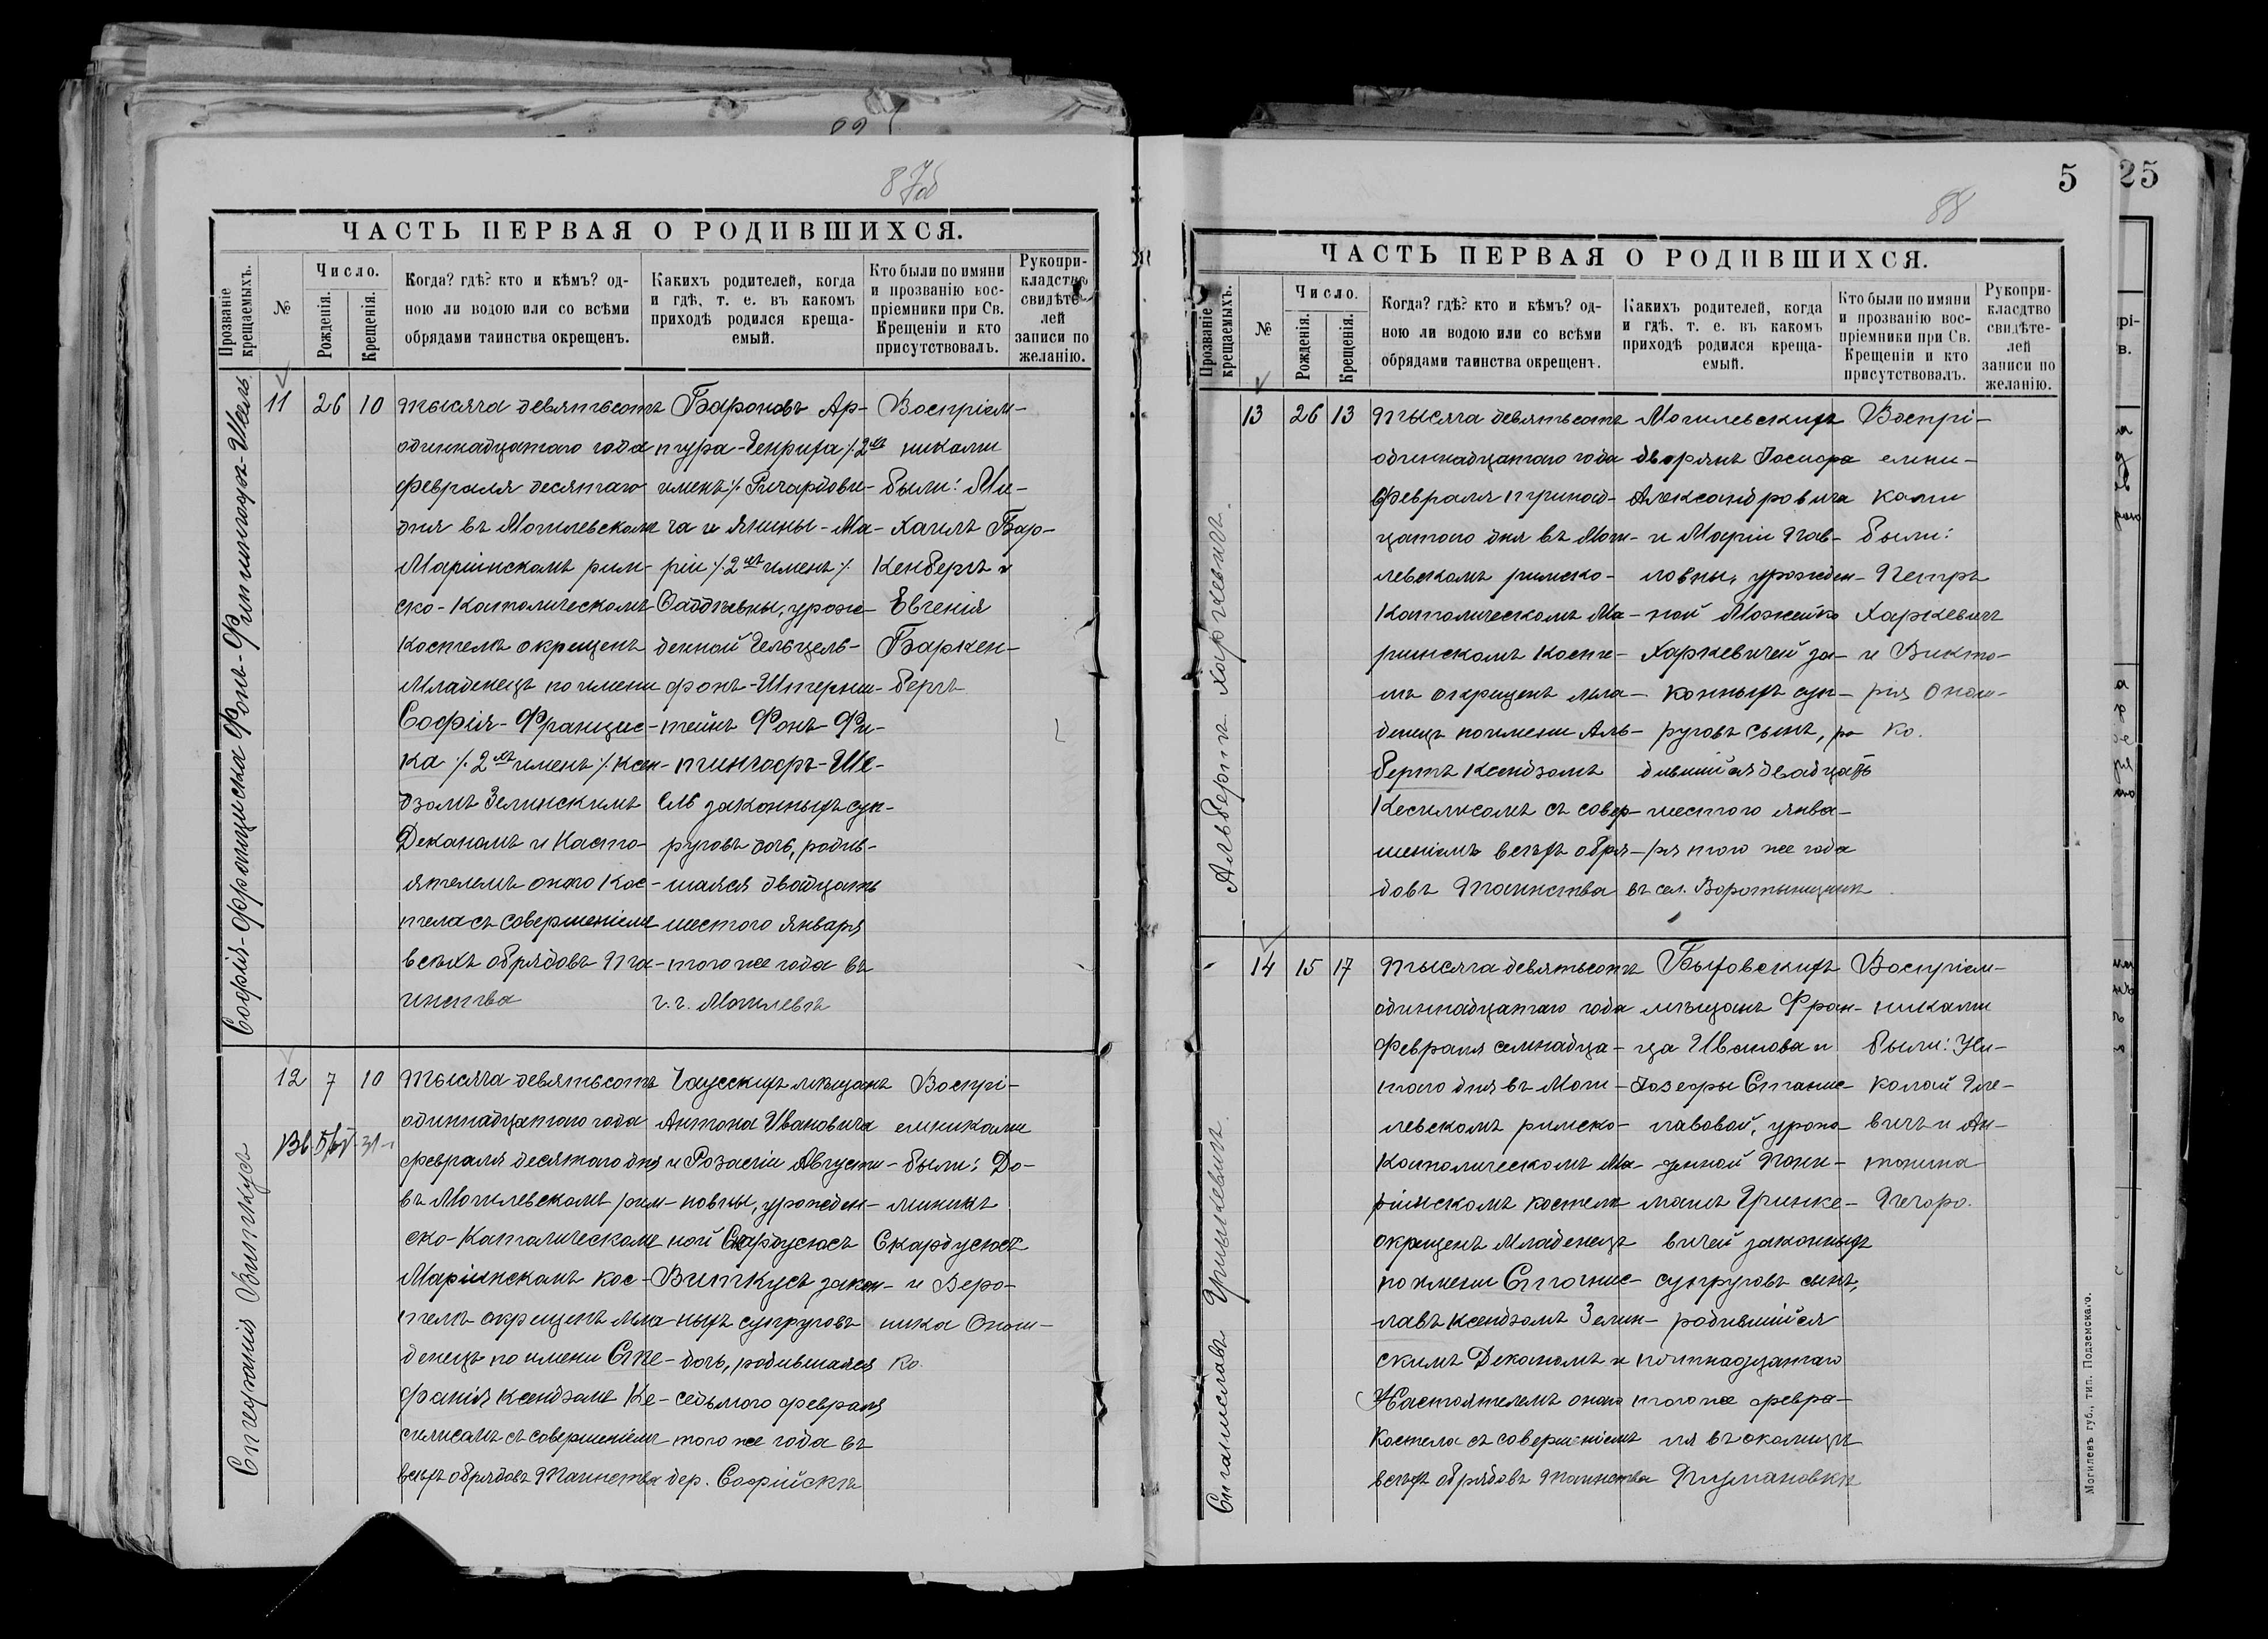 87об
ЧАСТЬ ПЕРВАЯ О РОДИВШИХСЯ.
Прозваніе крещаемыхъ.
№
Число.
Рожденія.
Крещенія.
Когда? гдѣ? кто и кѣмъ? од-
ною ли водою или со всѣми
обрядами таинства окрещенъ.
Какихъ родителей, когда
и гдѣ, т. е. въ какомъ
приходѣ родился креща-
емый.
Кто были по имяни
и прозванію вос-
пріемники при Св.
Крещеніи и кто
присутствовалъ.
Рукопри-
кладство
свидѣте-
лей
записи по
желанію.
Софія-Франциска Фонъ-Фитингофъ-Шель
11
26
10
Тысяча девятьсотъ
одиннадцатаго года
февраля десятаго
дня въ Могилевскомъ
Маріинскомъ рим-
ско-Католическомъ
костелѣ окрещенъ
Младенецъ по имени
Софія-Францис-
ка /. 2 мъ именъ /. Ксен-
дзомъ Зелинскимъ
Деканомъ и Насто-
ятелемъ онаго Кос-
тела съ совершеніемъ
всѣхъ обрядовъ Та-
инства
Бароновъ Ар-
тура-Генриха /. 2 мъ
именъ /. Ричардови-
ча и Янины-Ма-
ріи /. 2 мъ именъ /.
урож-
денной Гельцель-
фонъ-Штерни-
тейнъ Фонъ-Фи-
тингофъ-Ше-
ель законныхъ суп-
руговъ дочь, родив-
шаяся двадцать
шестого января
того же года въ
г. г. Могилевѣ
Воспріем-
никами
были: Ми-
хаилъ Бар-
кенбергъ и
Евгенія
Баркен-
бергъ
Стефанія Виткусъ
12
7
10
Тысяча девятьсотъ
одиннадцатаго года
февраля десятаго дня
въ Могилевскомъ рим-
ско-Католическомъ
Маріинскомъ кос-
телѣ окрещенъ мла-
денецъ по имени Сте-
фанія ксендзомъ Ке-
силисомъ съ совершеніемъ
всѣхъ обрядовъ Таинства
Чаусскихъ мѣщанъ
Антона Ивановича
и Розаліи Августи-
новны, урожден-
ной Скардусюсъ
Виткусъ закон-
ныхъ супруговъ
дочь, родившаяся
седьмого февраля
того же года въ
дер. Софійскѣ
Воспрі-
емниками
были: До-
миникъ
Скардусюсъ
и Веро-
ника Онош-
ко.
5
88
ЧАСТЬ ПЕРВАЯ О РОДИВШИХСЯ.
Прозваніе крещаемыхъ.
№
Число.
Рожденія.
Крещенія.
Когда? гдѣ? кто и кѣмъ? од-
ною ли водою или со всѣми
обрядами таинства окрещенъ.
Какихъ родителей, когда
и гдѣ, т. е. въ какомъ
приходѣ родился креща-
емый.
Кто были по имяни
и прозванію вос-
пріемники при Св.
Крещеніи и кто
присутствовалъ.
Рукопри-
класдтво
свидѣте-
лей
записи по
желанію.
Альбертъ Харкевичъ.
13
26
13
Тысяча девятьсотъ
одиннадцатаго года
Февраля тринад-
цатаго дня въ Моги-
левскомъ римско-
Католическомъ Ма-
ріинскомъ Косте-
лѣ окрещенъ мла-
денецъ по имени Аль-
бертъ Ксендзомъ
Кесилисомъ съ совер-
шеніемъ всѣхъ обря-
довъ Таинства
Могилевскихъ
дворянъ Іосифа
Александровича
и Маріи Пав-
ловны, урожден-
ной Можейко
Харкевичей за-
конныхъ суп-
руговъ сынъ, ро-
дившійся двадцать
шестого янва-
ря того же года
въ сел. Воротынщинѣ
Воспрі-
емни-
ками
были:
Петръ
Харкевичъ
и Викто-
рія Онош-
ко.
Станиславъ Гринкевичъ.
14
15
17
Тысяча девятьсотъ
одиннадцатаго года
Февраля семнадца-
таго дня въ Моги-
левскомъ римско-
Католическомъ Ма-
ріинскомъ костелѣ
окрещенъ Младенецъ
по имени Станис-
лавъ ксендзомъ Зелин-
скимъ Деканомъ и
Настоятелемъ онаго
Костела съ совершеніемъ
всѣхъ обрядовъ Таинства
Быховскихъ
мѣщанъ Фран-
ца Иванова и
Іозефы Станис-
лавовой, урож-
денной
Гринке-
вичей законныхъ
супруговъ сынъ,
родившійся
пятнадцатаго
того же февра-
ля въ околицѣ
Воспріем-
никами
были: Ни-
колай Гле-
вичъ и Ан-
тонина
Могилевъ губ., тип. Подземскаго.
25